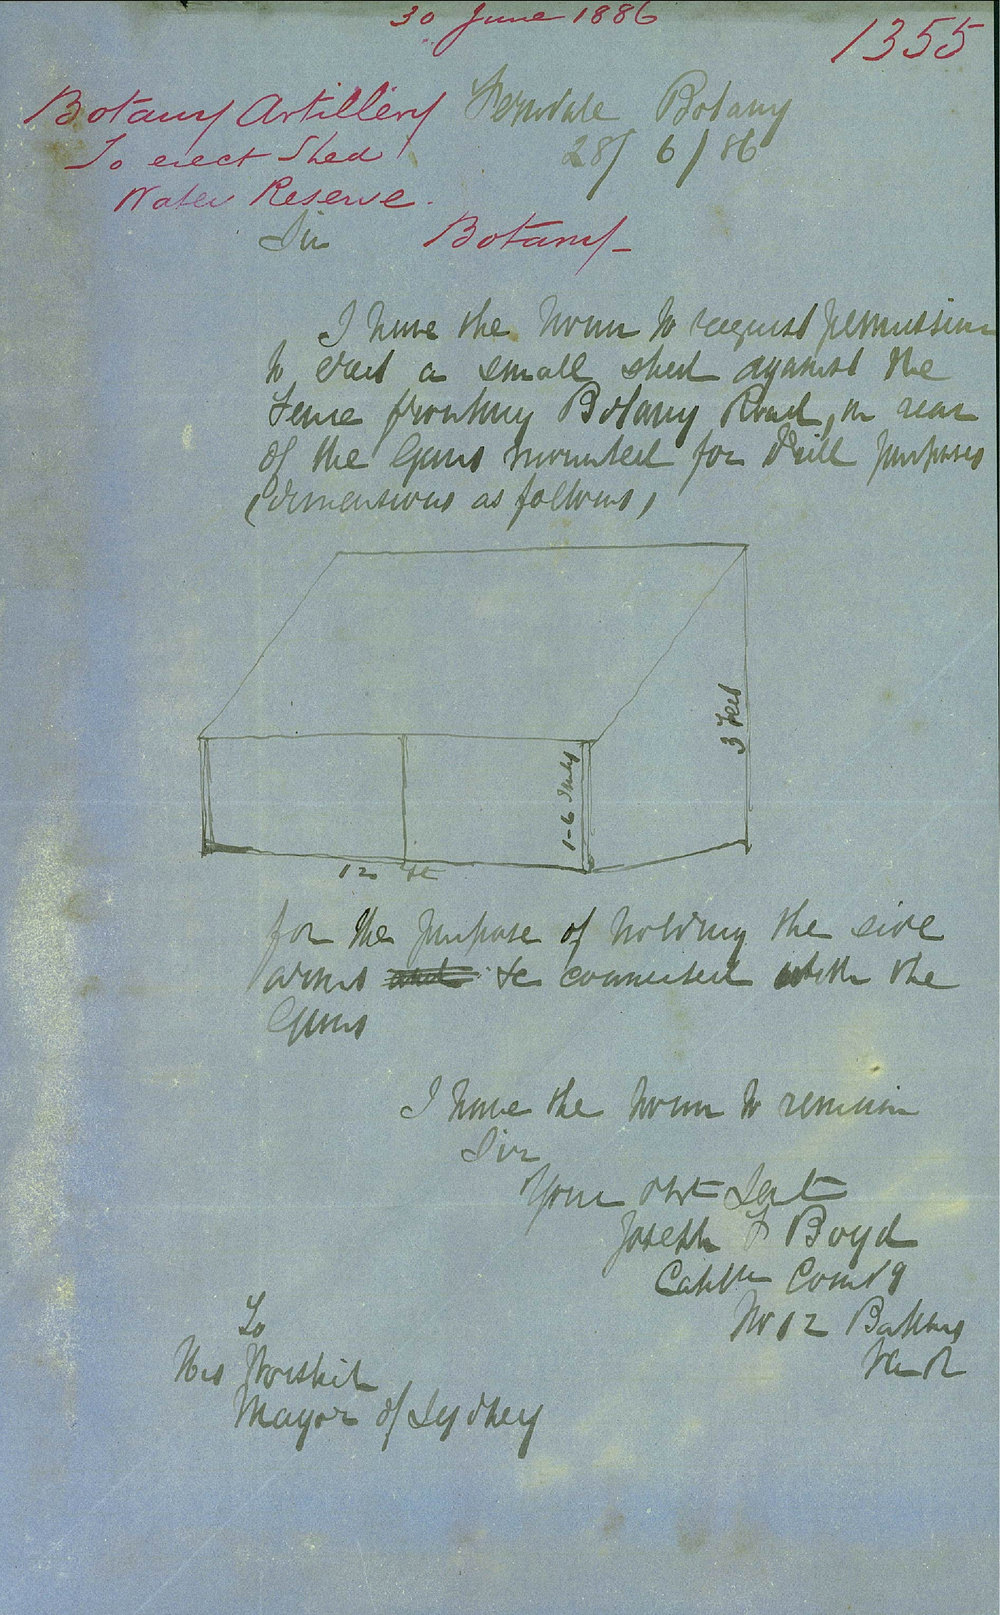 30 June 1886
1355
Botany Artillery
To erect Shed
Water Reserve.
Botany
Ferndale Botany
28/6/86
Sir
I have the honor to request permission
to erect a small shed against the
Fence fronting Botany Road, in rear
of the Guns mounted for Drill purposes
(dimensions as follows)
3 Feet
1-6 Inches
12 ft
for the purpose of holding the side
arms and &c connected with the
Guns
I have the honor to remain
Sir
Your obt Servt
Joseph F Boyd
Captn Comdg
No 12 Battery
V A
To
His Worship
Mayor of Sydney